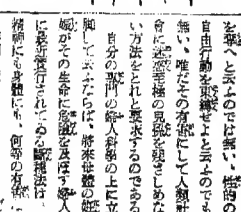 を棄へと云ふのでは無い、性的の
自由行動を束縛せよと云ふのでも
無い、唯だその有害にして人類社
會に迷惑至極の見孤を残さしめな
い方法をとれと要求するのである
自分の専門の婦人科學の上に立
脚して云ふならば、將來母體の姙
娠がその生命に危險を及ぼす婦人
に最近遂行されてゐる斷種法は
精神にも身體にも、何等の有害